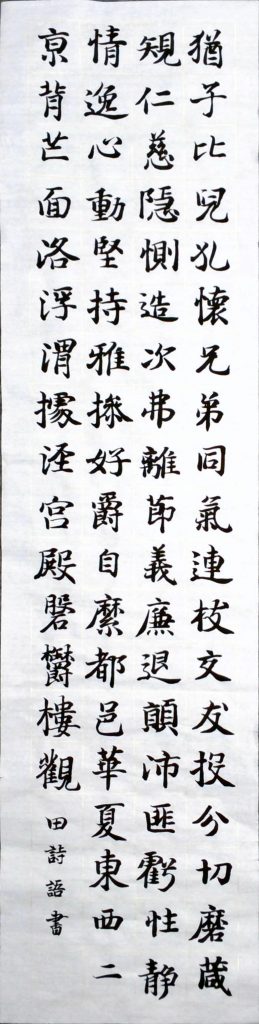 猶子比兒孔懷兄弟同氣連枝交友投分切磨箴
規仁慈隱惻造次弗離節義廉退顛沛匪虧性静
情逸心動堅持雅操好爵自縻都邑華夏東西二
京背芒面洛浮渭據涇宮殿磐鬱樓觀 田詩語書